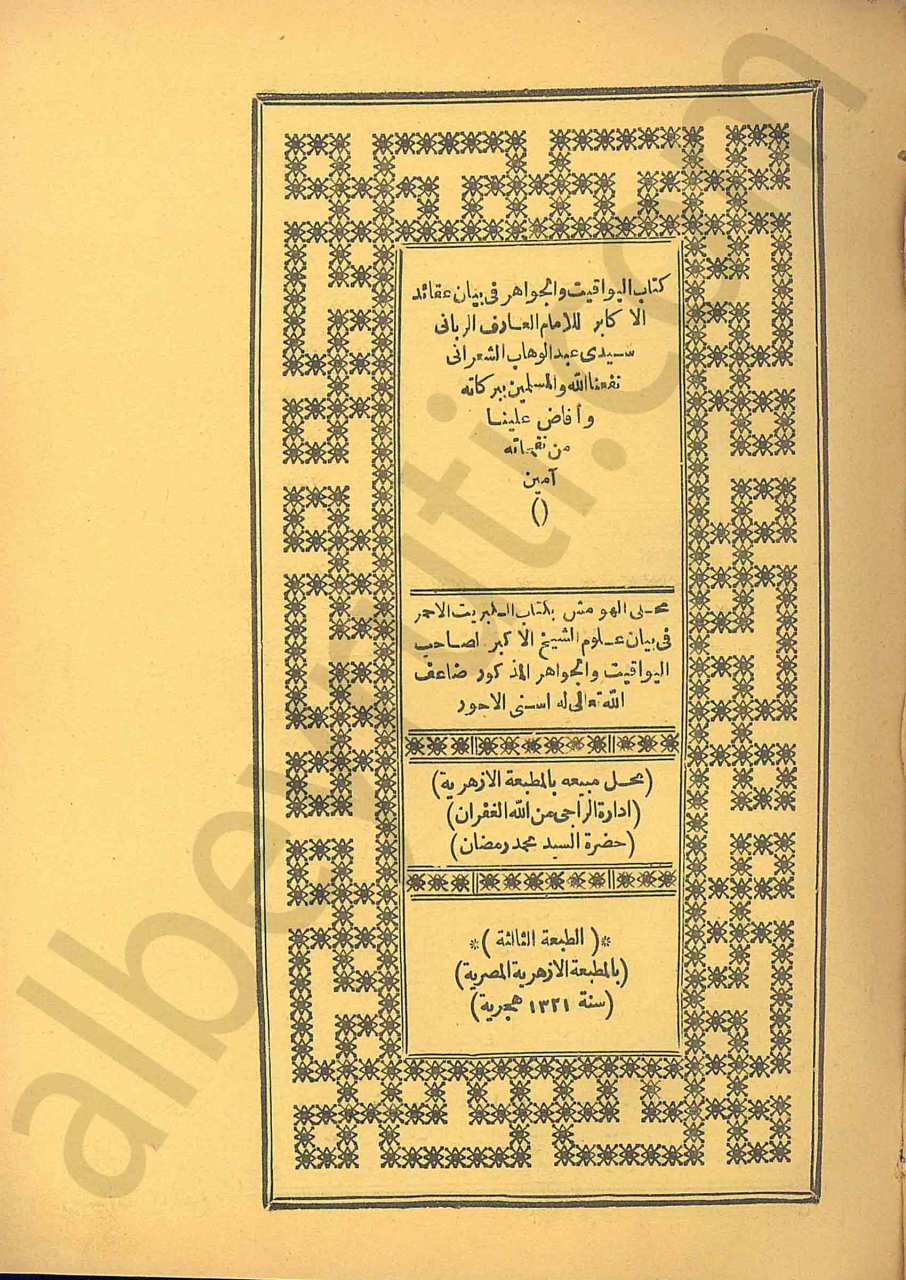 كتاب اليواقيت والجواهر فى بيان عقائد
الاكابر للامام العارف الربانى
سيدى عبدالوهاب الشعرانى
نفعنا الله والمسلمين ببركاته
وأفاض علينا
من نفحاته
آمين
()
محلى الهومش بكتاب الكبريت الاحمر
فى بيان علوم الشيخ الاكبر لصاحب
اليواقيت والجواهر المذكور ضاعف
الله تعالى له اسنى الاجور
(محل مبيعه بالمطبعة الازهرية)
(ادارة الراجى من الله الغفران)
(حضرة السيد محمد رمضان)
*(الطبعة الثالثة)*
(بالمطبعة الازهرية المصرية)
(سنة ١٣٢١ هجرية)
albeyruti.com